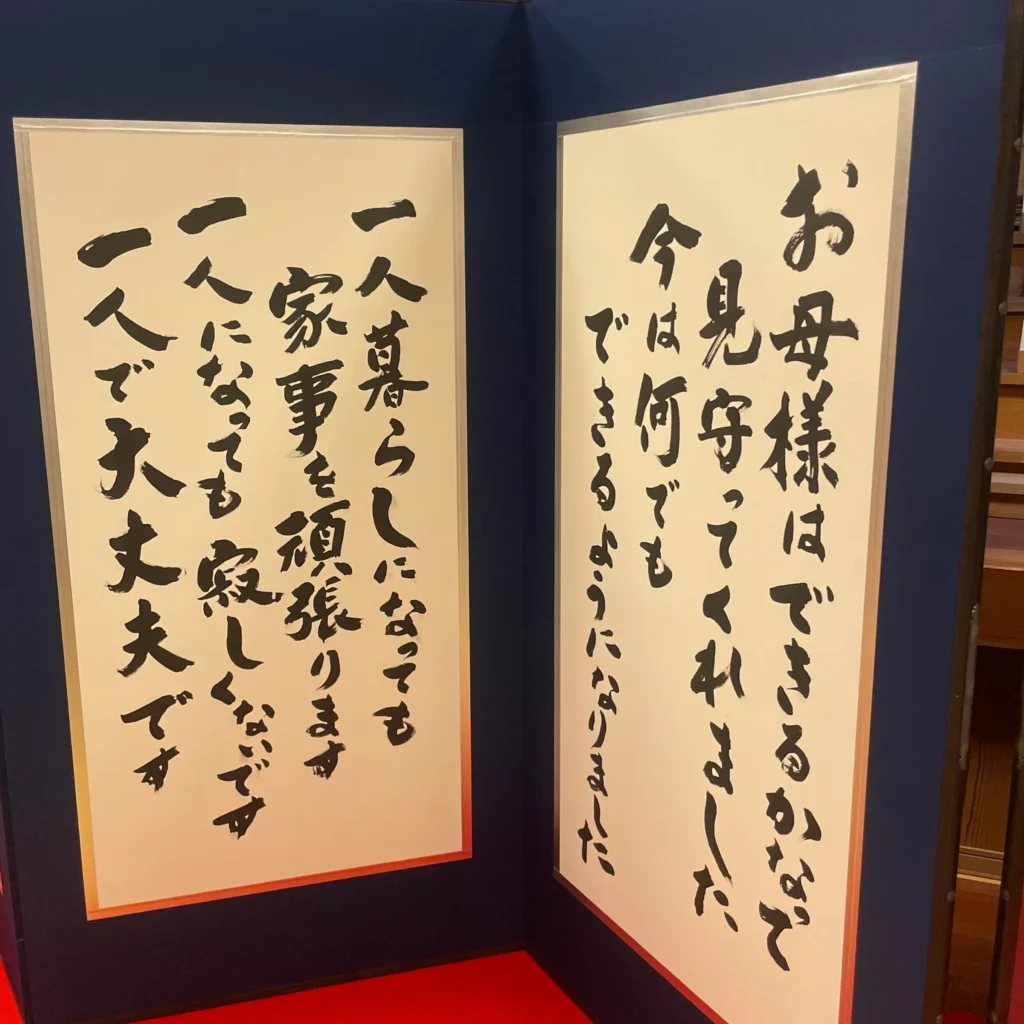 お母様はできるかなって
見守ってくれました
今は何でも
できるようになりました
一人暮らしになっても
家事を頑張ります
一人になっても寂しくないです
一人で大丈夫です